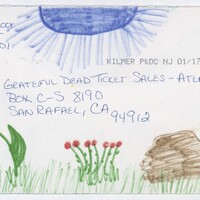 OCK
KILMER P&DC NJ 01/17
01
GRATEFUL DEAD TICKET SALES - ATL
BOX C-S 8190
SAN RAFAEL, CA
94912